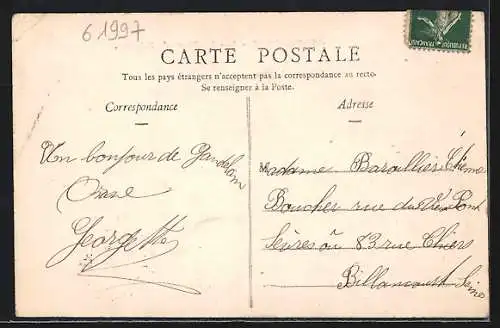 61997
CARTE POSTALE
Tous les pays étrangers n'acceptent pas la correspondance au recto.
Se renseigner à la Poste.
Correspondance
Adresse
Un bonjour de Gandelain
Orne
Georgette
Madame Baraillier Etienne
Boucher rue du Vieux Pont
Sèvres ou 83 rue Thiers
Billancourt Seine
REPUBLIQUE FRANÇAISE